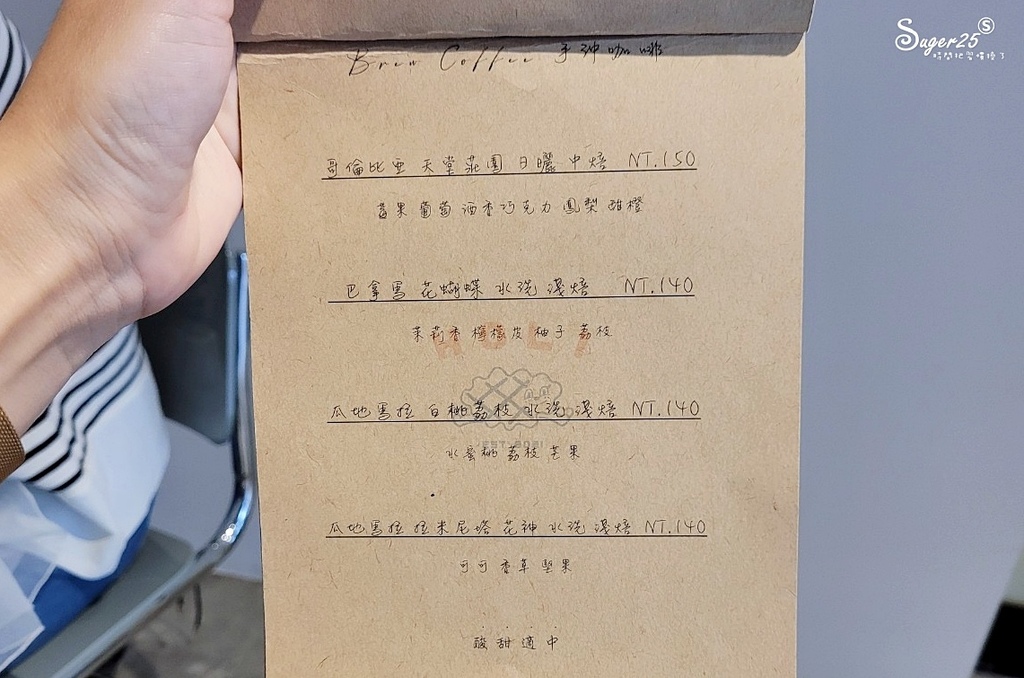 Suger25 S
時間把習慣換了
Brew Coffee 手沖咖啡
哥倫比亞 天堂莊園 日曬 中焙 NT.150
莓果 葡萄 酒香巧克力 鳳梨 甜橙
巴拿馬 花蝴蝶 水洗 淺焙 NT.140
茉莉香 檸檬皮 柚子 荔枝
HOLY
瓜地馬拉 白桃荔枝 水洗 淺焙 NT.140
EST.2021
水蜜桃 荔枝 芒果
瓜地馬拉 拉米尼塔 花神 水洗 淺焙 NT.140
可可 香草 堅果
酸甜適中